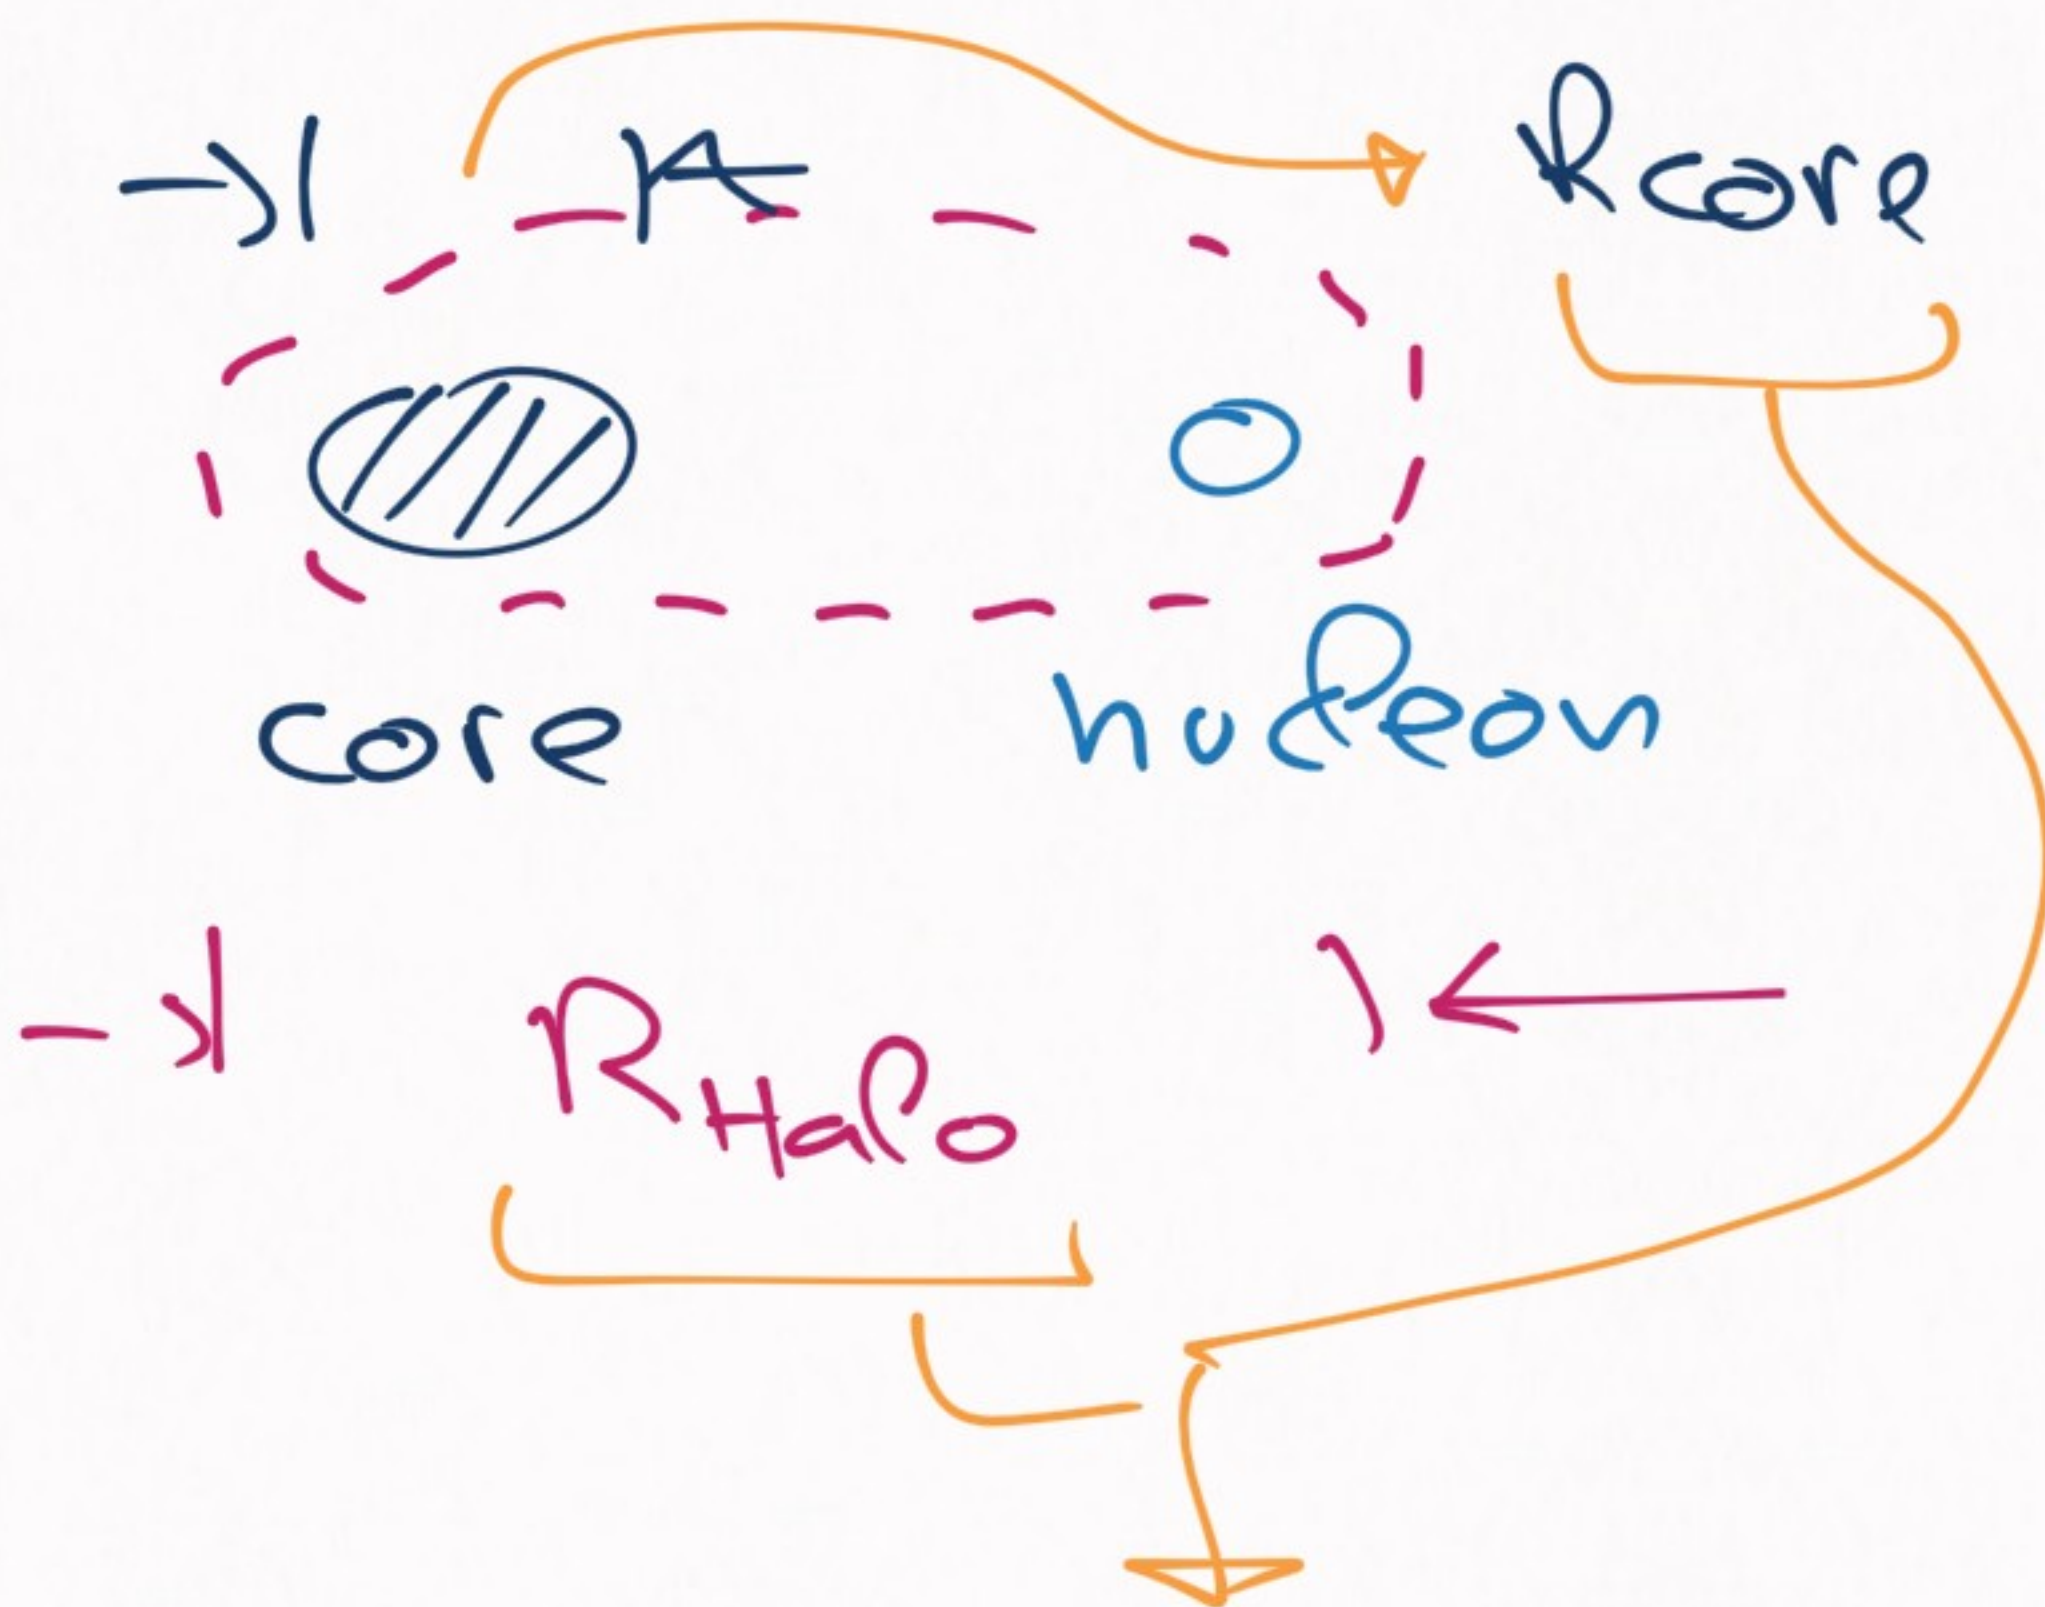 Rcore
core
nucleon
RHalo